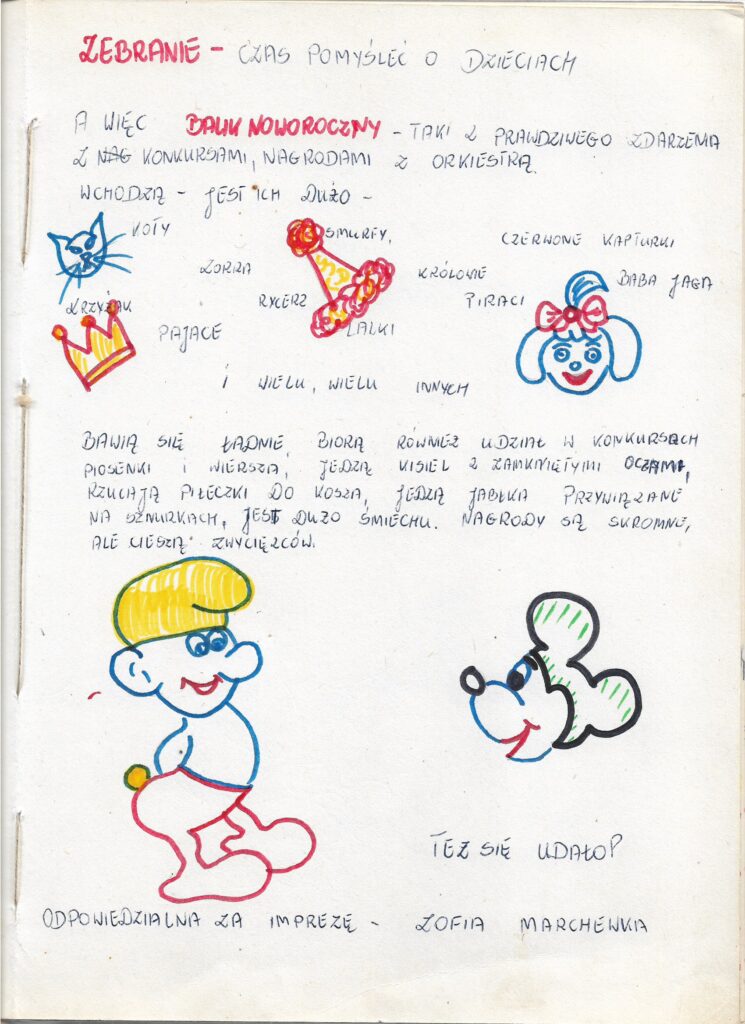 ZEBRANIE - CZAS POMYŚLEĆ O DZIECIACH
A WIĘC BALIK NOWOROCZNY - TAKI Z PRAWDZIWEGO ZDARZENIA
Z NAG KONKURSAMI, NAGRODAMI Z ORKIESTRĄ.
WCHODZĄ - JEST ICH DUŻO -
KOTY SMURFY, CZERWONE KAPTURKI
ZORRA KRÓLOWIE BABA JAGA
KRZYŻAK RYCERZ PIRACI
PAJACE LALKI
I WIELU, WIELU INNYCH
BAWIĄ SIĘ ŁADNIE, BIORĄ RÓWNIEŻ UDZIAŁ W KONKURSACH
PIOSENKI I WIERSZA, JEDZĄ KISIEL Z ZAMKNIĘTYMI OCZAMI,
RZUCAJĄ PIŁECZKI DO KOSZA, JEDZĄ JABŁKA PRZYWIĄZANE
NA SZNURKACH, JEST DUŻO ŚMIECHU. NAGRODY SĄ SKROMNE,
ALE CIESZĄ ZWYCIĘZCÓW.
TEŻ SIĘ UDAŁO?
ODPOWIEDZIALNA ZA IMPREZĘ - ZOFIA MARCHEWKA